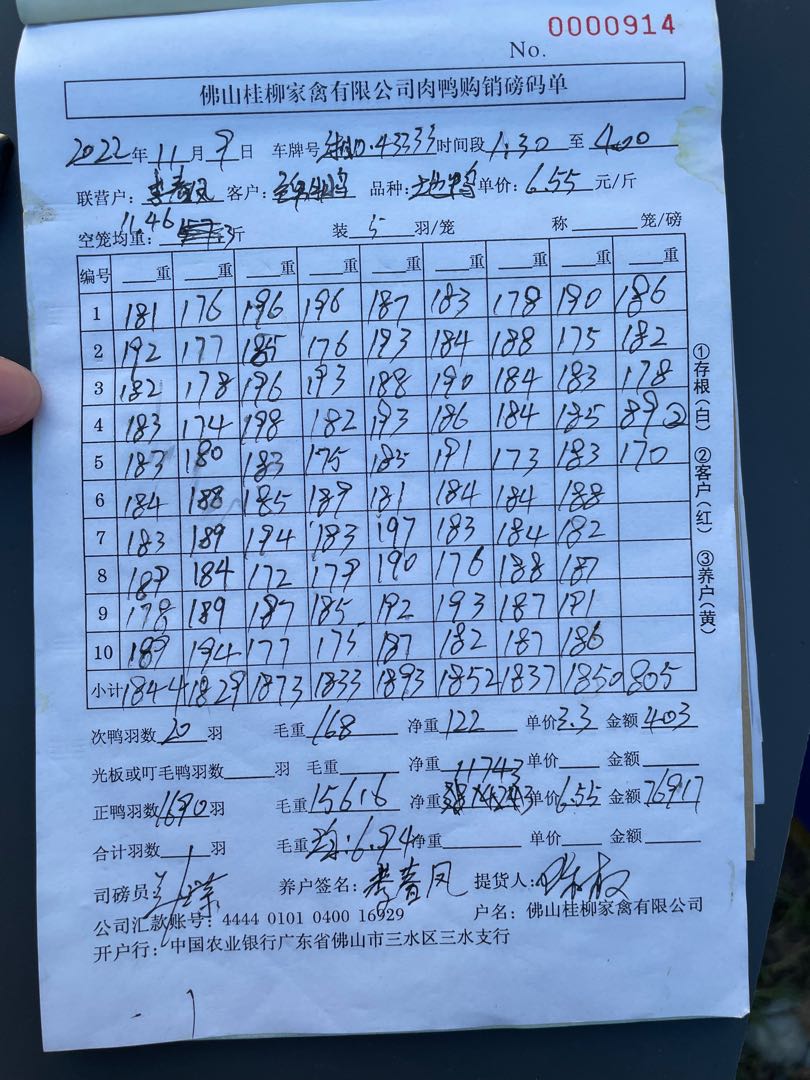 No. 0000914
佛山桂柳家禽有限公司肉鸭购销磅码单
2022年11月9日 车牌号 43333 时间段1:30至4.00
联营户: 李春凤 客户: 品种: 土鸭 单价: 6.55 元/斤
空笼均重: 11.46 斤 装 5 羽/笼 称 笼/磅
编号 重 重 重 重 重 重 重 重 重
1 181 176 196 196 187 183 178 190 186
2 192 177 185 176 193 184 188 175 182
3 182 178 196 193 188 190 184 183 178
4 183 174 198 182 193 186 184 185 89②
5 183 180 183 175 185 191 173 183 170
6 184 188 185 189 181 184 184 188
7 183 189 194 183 197 183 184 182
8 189 184 172 179 190 176 188 187
9 178 189 187 185 192 193 187 191
10 189 194 177 175 187 182 187 186
小计 1844 1829 1873 1833 1893 1852 1837 1850 805
①存根(白) ②客户(红) ③养户(黄)
次鸭羽数 20 羽 毛重 168 净重 122 单价 3.3 金额 403
光板或叮毛鸭羽数 羽 毛重 净重 单价 金额
正鸭羽数 1690 羽 毛重 15616 净重 11743 单价 6.55 金额 76917
合计羽数 羽 毛重 均:6.94 净重 单价 金额
司磅员: 养户签名: 李春凤 提货人:
公司汇款账号: 4444 0101 0400 16929 户名: 佛山桂柳家禽有限公司
开户行: 中国农业银行广东省佛山市三水区三水支行